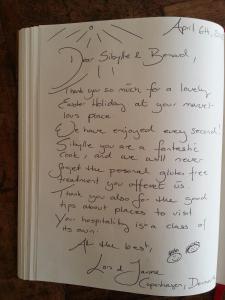 April 6th,
Dear Sibylle & Bernard,
Thank you so much for a lovely
Easter Holiday at your marvel-
lous place
We have enjoyed every second!
Sibylle you are a fantastic
cook, and we will never
forget the personal gluten free
treatment you offered us.
Thank you also for the good
tips about places to visit
Your hospitality is a class of
its own.
All the best,
&
Copenhagen, Denmark